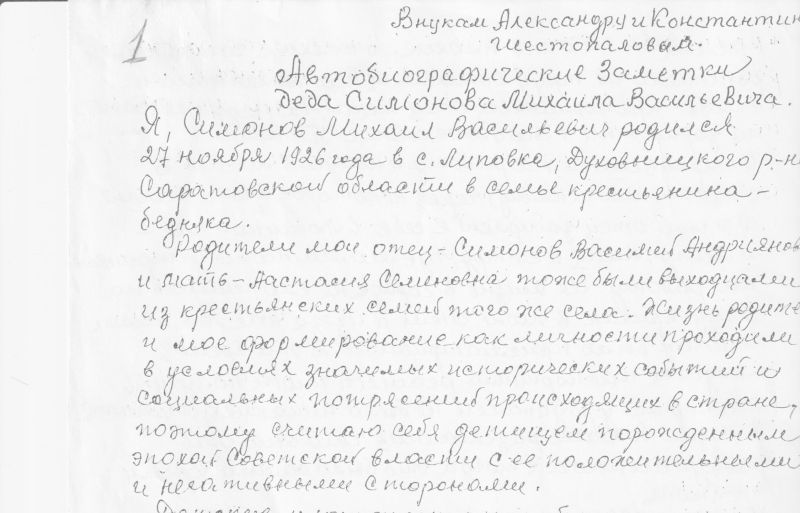 1
Внукам Александру и Константин
Шестопаловым.
Автобиографические заметки
деда Симонова Михаила Васильевича.
Я, Симонов Михаил Васильевич родился
27 ноября 1926 года в с. Липовка, Духовницкого р-н
Саратовской области в семье крестьянина-
бедняка.
Родители мои отец - Симонов Василий Андриянов
и мать - Анастасия Семеновна тоже были выходцами
из крестьянских семей того же села. Жизнь родите
и мое формирование как личности проходили
в условиях значимых исторических событий и
социальных потрясений происходящих в стране,
поэтому считаю себя детищем порожденным
эпохой Советской власти с ее положительными
и негативными сторонами.